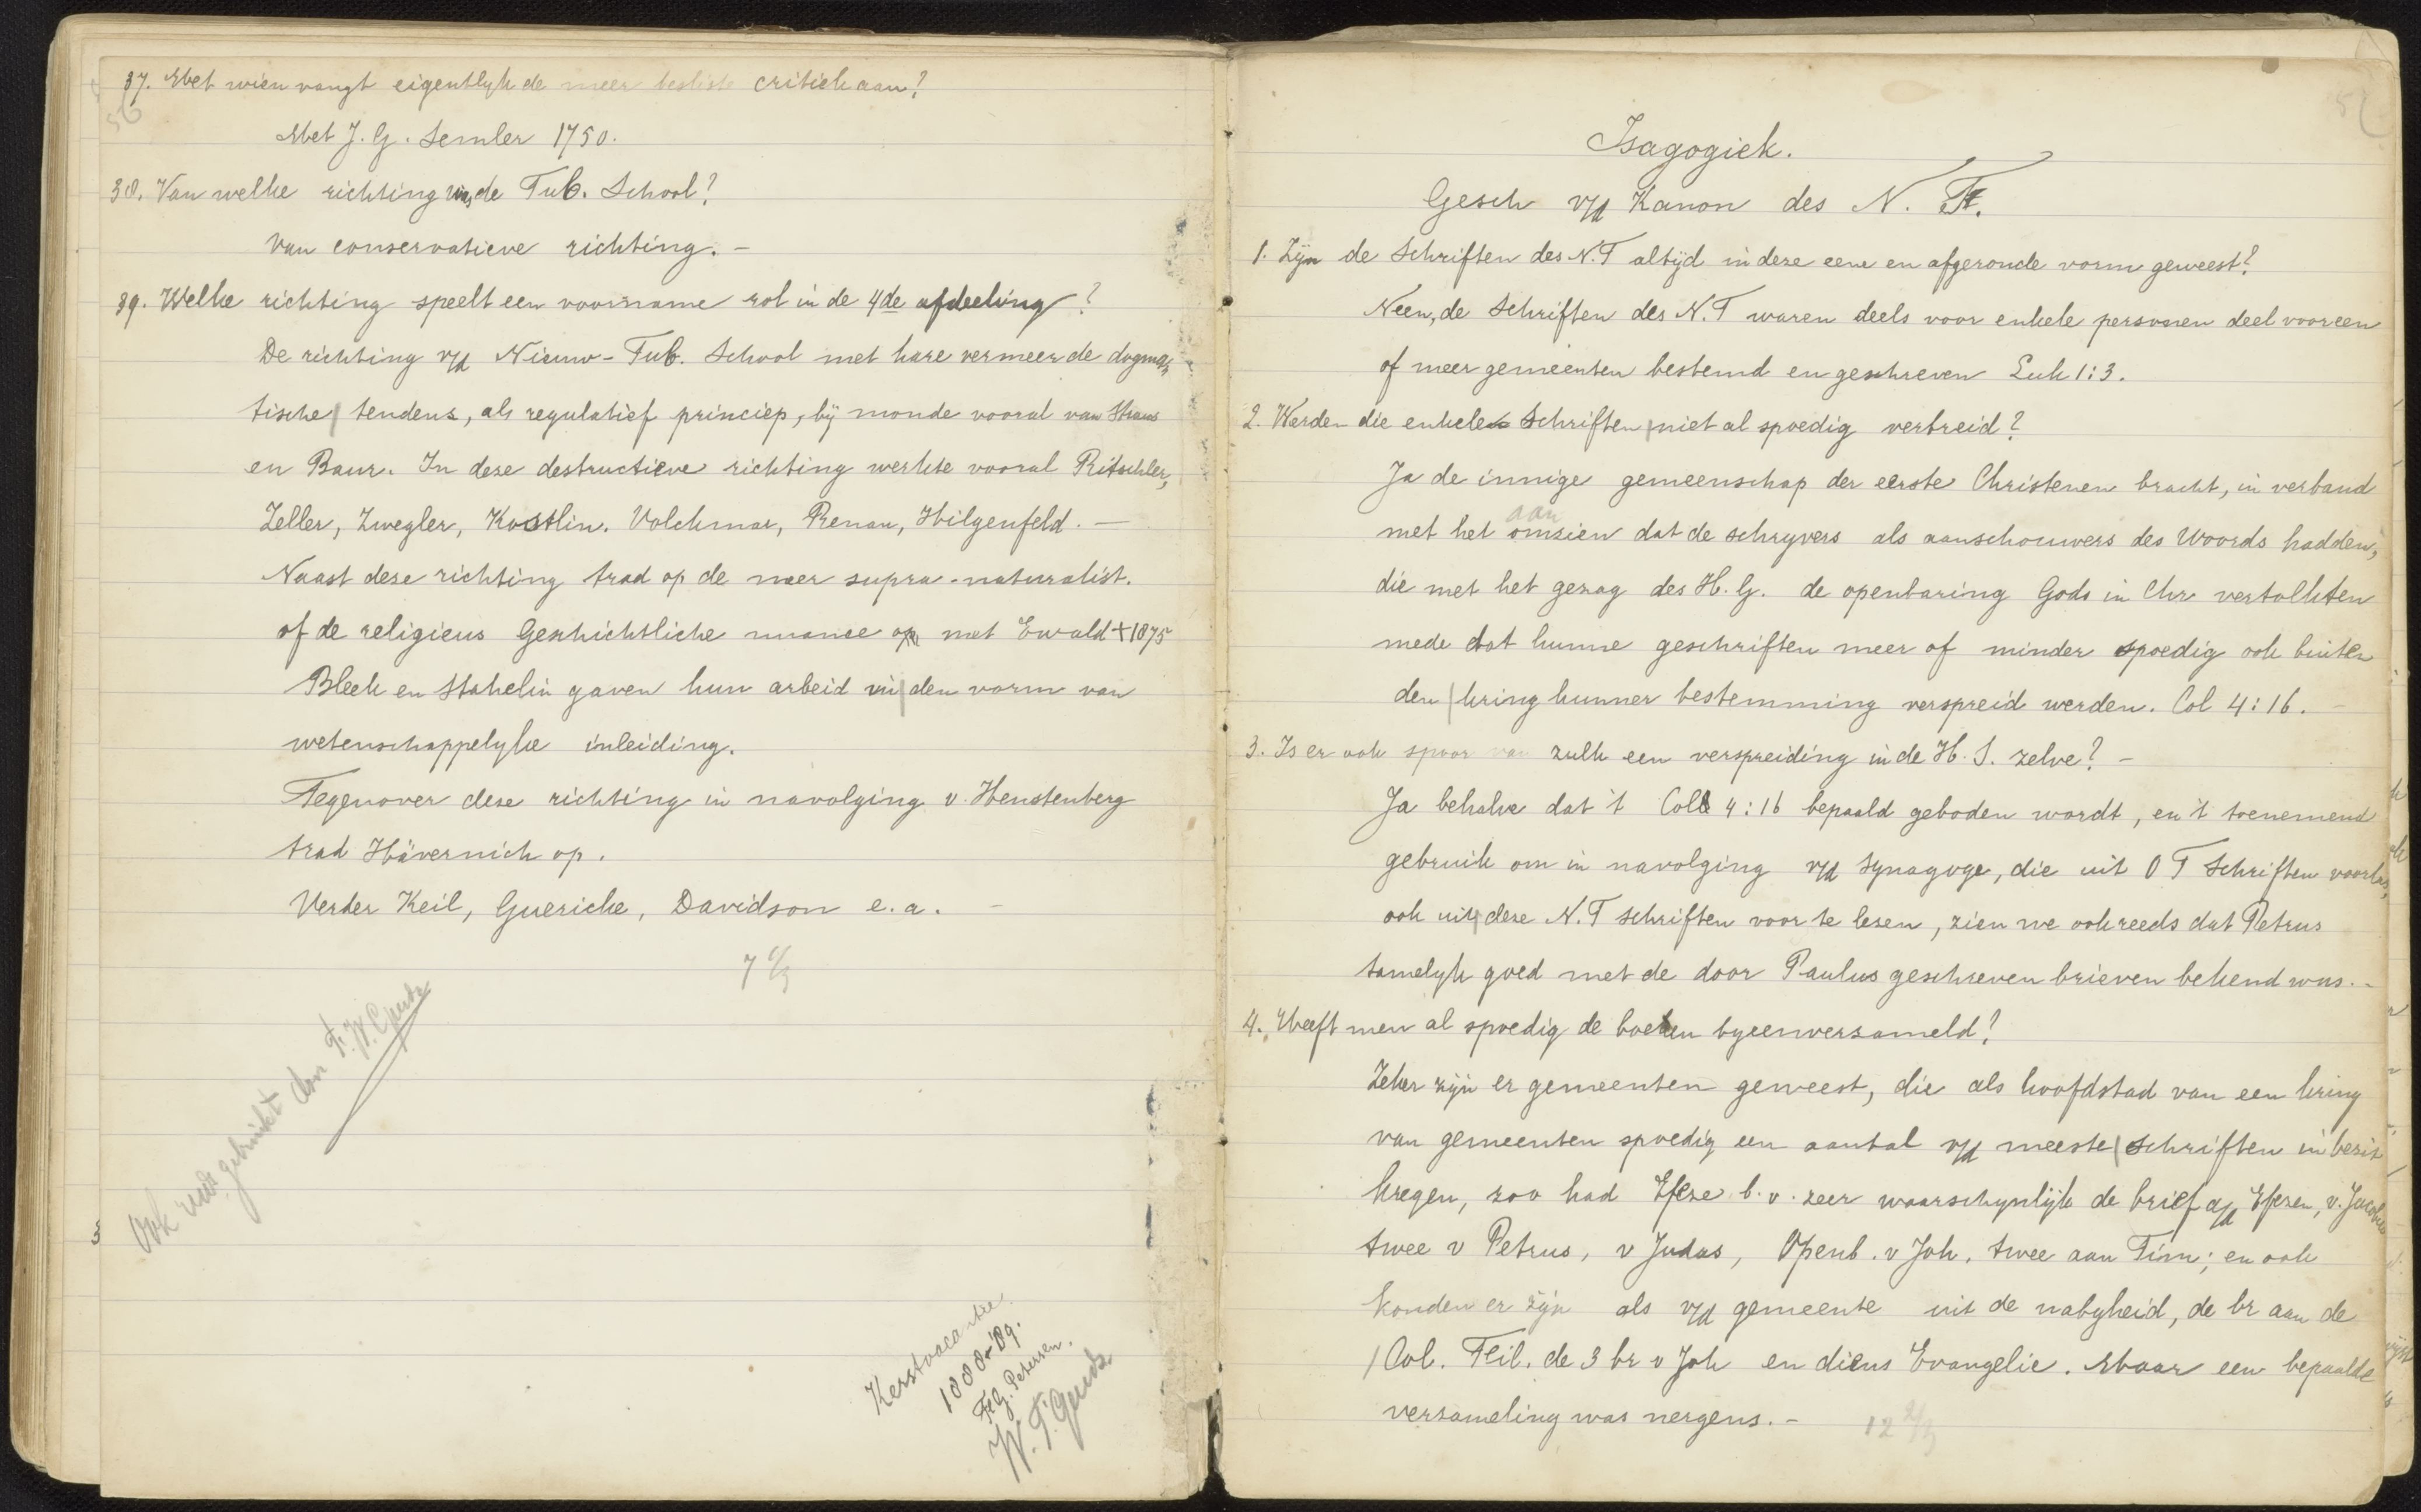 56
37. Met wien vangt eigentlyk de meer besliste critiek aan?
Met J. G. Semler 1750.
38. Van welke richting was de Tub. School?
Van conservatieve richting. –
39. Welke richting speelt een voorname rol in de 4de afdeeling?
De richting v/d Nieuw-Tub. School met hare vermeerde dogma-
tische tendens, als regulatief princiep, bij monde vooral van Straus
en Baur. In deze destructieve richting werkte vooral Ritschler,
Zeller, Zwegler, Kostlin. Volckmar, Renan, Hilgenfeld. —
Naast deze richting trad op de meer supra-naturalist.
of de religieus Geschichtliche nuance met Ewald † 1875
Bleek en Stahelin gaven hun arbeid in den vorm van
wetenschappelyke inleiding.
Tegenover deze richting in navolging v. Henstenberg
trad Hävernick op.
Verder Keil, Guericke, Davidson e.a. –
7
Ook
3
Kerstvacantie
1888-'89.
Petersen.
Isagogiek.
Gesch v/d Kanon des N. T.
1. Zijn de Schriften des N.T altijd in deze eene en afgeronde vorm geweest?
Neen, de Schriften des N.T waren deels voor enkele personen deel voor een
of meer gemeenten bestemd en geschreven Luk 1:3.
2. Werden die enkele Schriften niet al spoedig verbreid?
Ja de innige gemeenschap der eerste Christenen bracht, in verband
aan
met het omzien dat de schryvers als aanschouwers des Woords hadden,
die met het gezag des H. G. de openbaring Gods in Chr vertolkten
mede dat hunne geschriften meer of minder spoedig ook buiten
den kring hunner bestemming verspreid werden. Col 4:16. –
3. Is er ook spoor van zulk een verspreiding in de H. S. zelve? –
Ja behalve dat 't Coll 4:16 bepaald geboden wordt, en 't toenemend
gebruik om in navolging v/d Synagoge, die uit O T Schriften voorlas,
ook uit deze N.T schriften voor te lezen, zien we ook reeds dat Petrus
tamelyk goed met de door Paulus geschreven brieven bekend was. –
4. Heeft men al spoedig de boeken byeenverzameld?
Zeker zijn er gemeenten geweest, die als hoofdstad van een kring
van gemeenten spoedig een aantal v/d meeste schriften in bezit
kregen, zoo had Efeze b.v. zeer waarschynlijk de brief a/d Efezen, v. Jacobus
twee v Petrus, v Judas, Openb. v Joh. twee aan Tim; en ook
konden er zijn als v/d gemeente uit de nabyheid, de br aan de
Col. Feil. de 3 br v Joh en diens Evangelie. Maar een bepaalde
verzameling was nergens. –
12 2/3